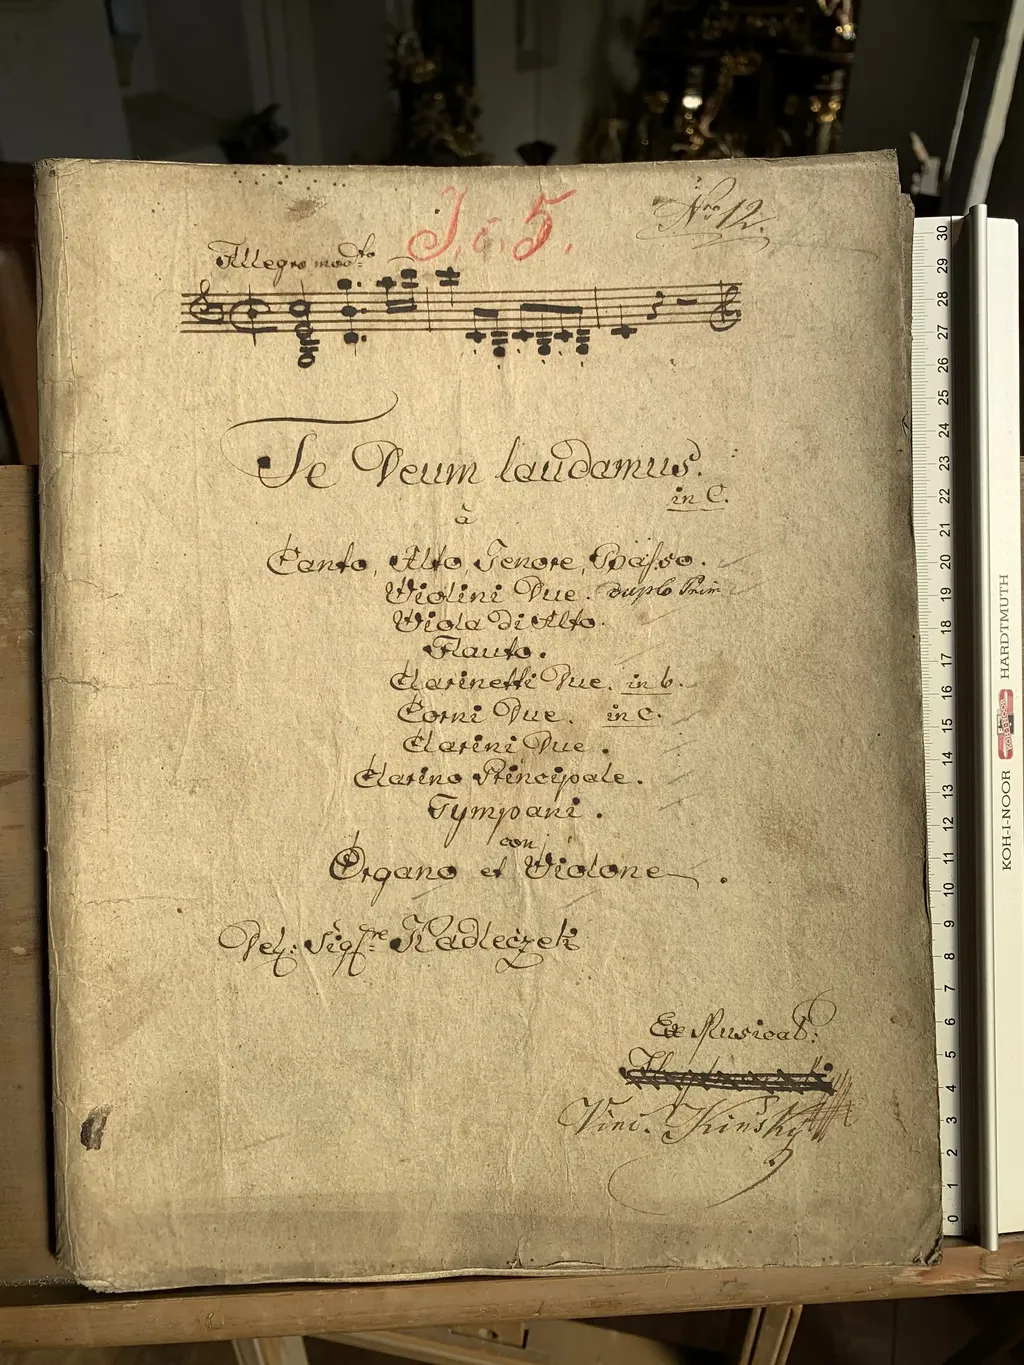 J. c. 5.
Nro 12.
Allegro modto
Te Deum laudamus.
in C.
à
Canto, Alto, Tenore, Basso.
Violini Due. duplo Prim
Viola di Alto.
Flauto.
Clarinetti Due. in b.
Corni Due. in C.
Clarini Due.
Clarino Principale.
Tympani.
con
Organo et Violone.
Del: Sigre Kadleczek
Ex Musical:
Vinc. Kinský
0 1 2 3 4 5 6 7 8 9 10 11 12 13 14 15 16 17 18 19 20 21 22 23 24 25 26 27 28 29 30
KOH-I-NOOR HARDTMUTH